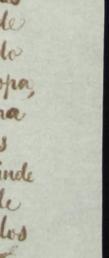 de
do
opa,
na
s
inde
de
los